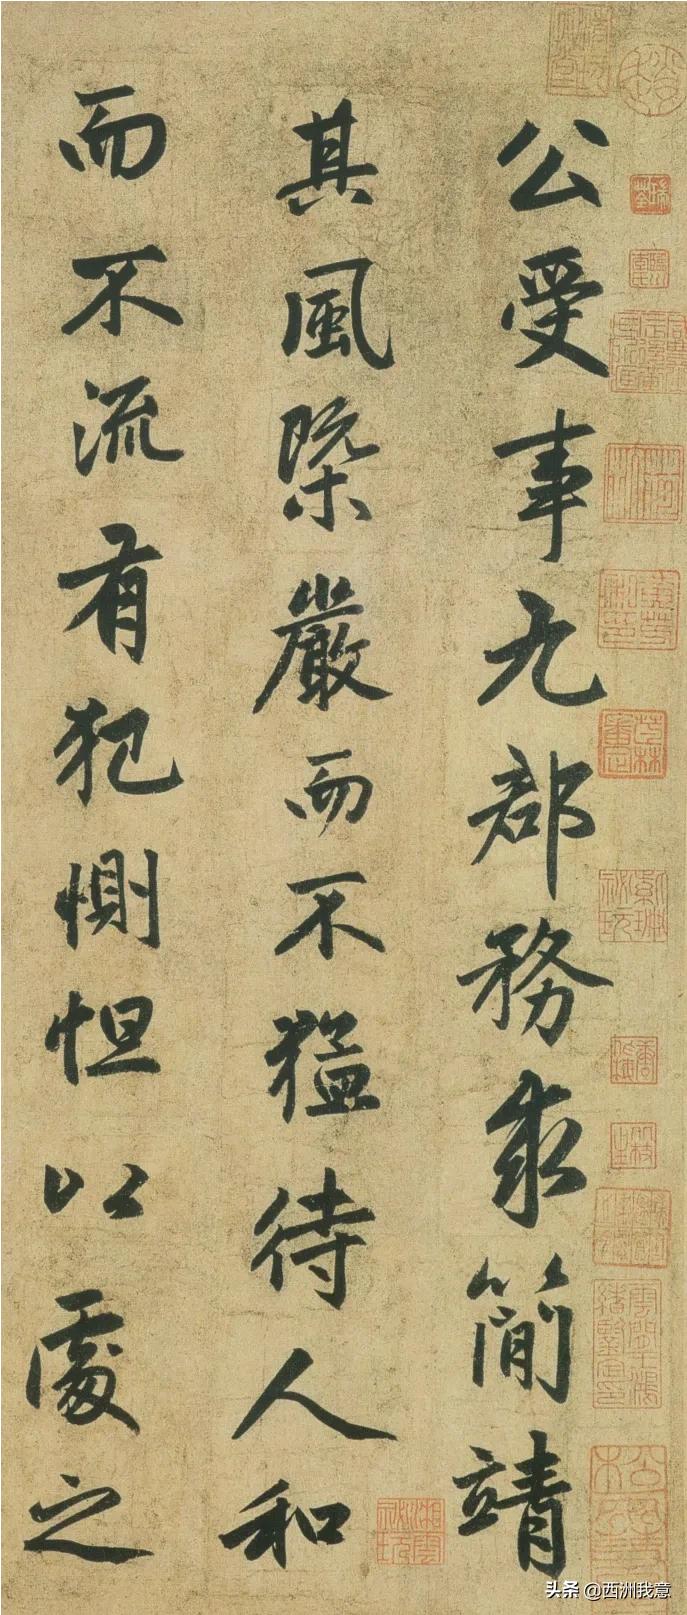 公受事九郡務求簡靖
其風槩嚴而不猛待人和
而不流有犯惻怛以處之
頭条 @西洲我意